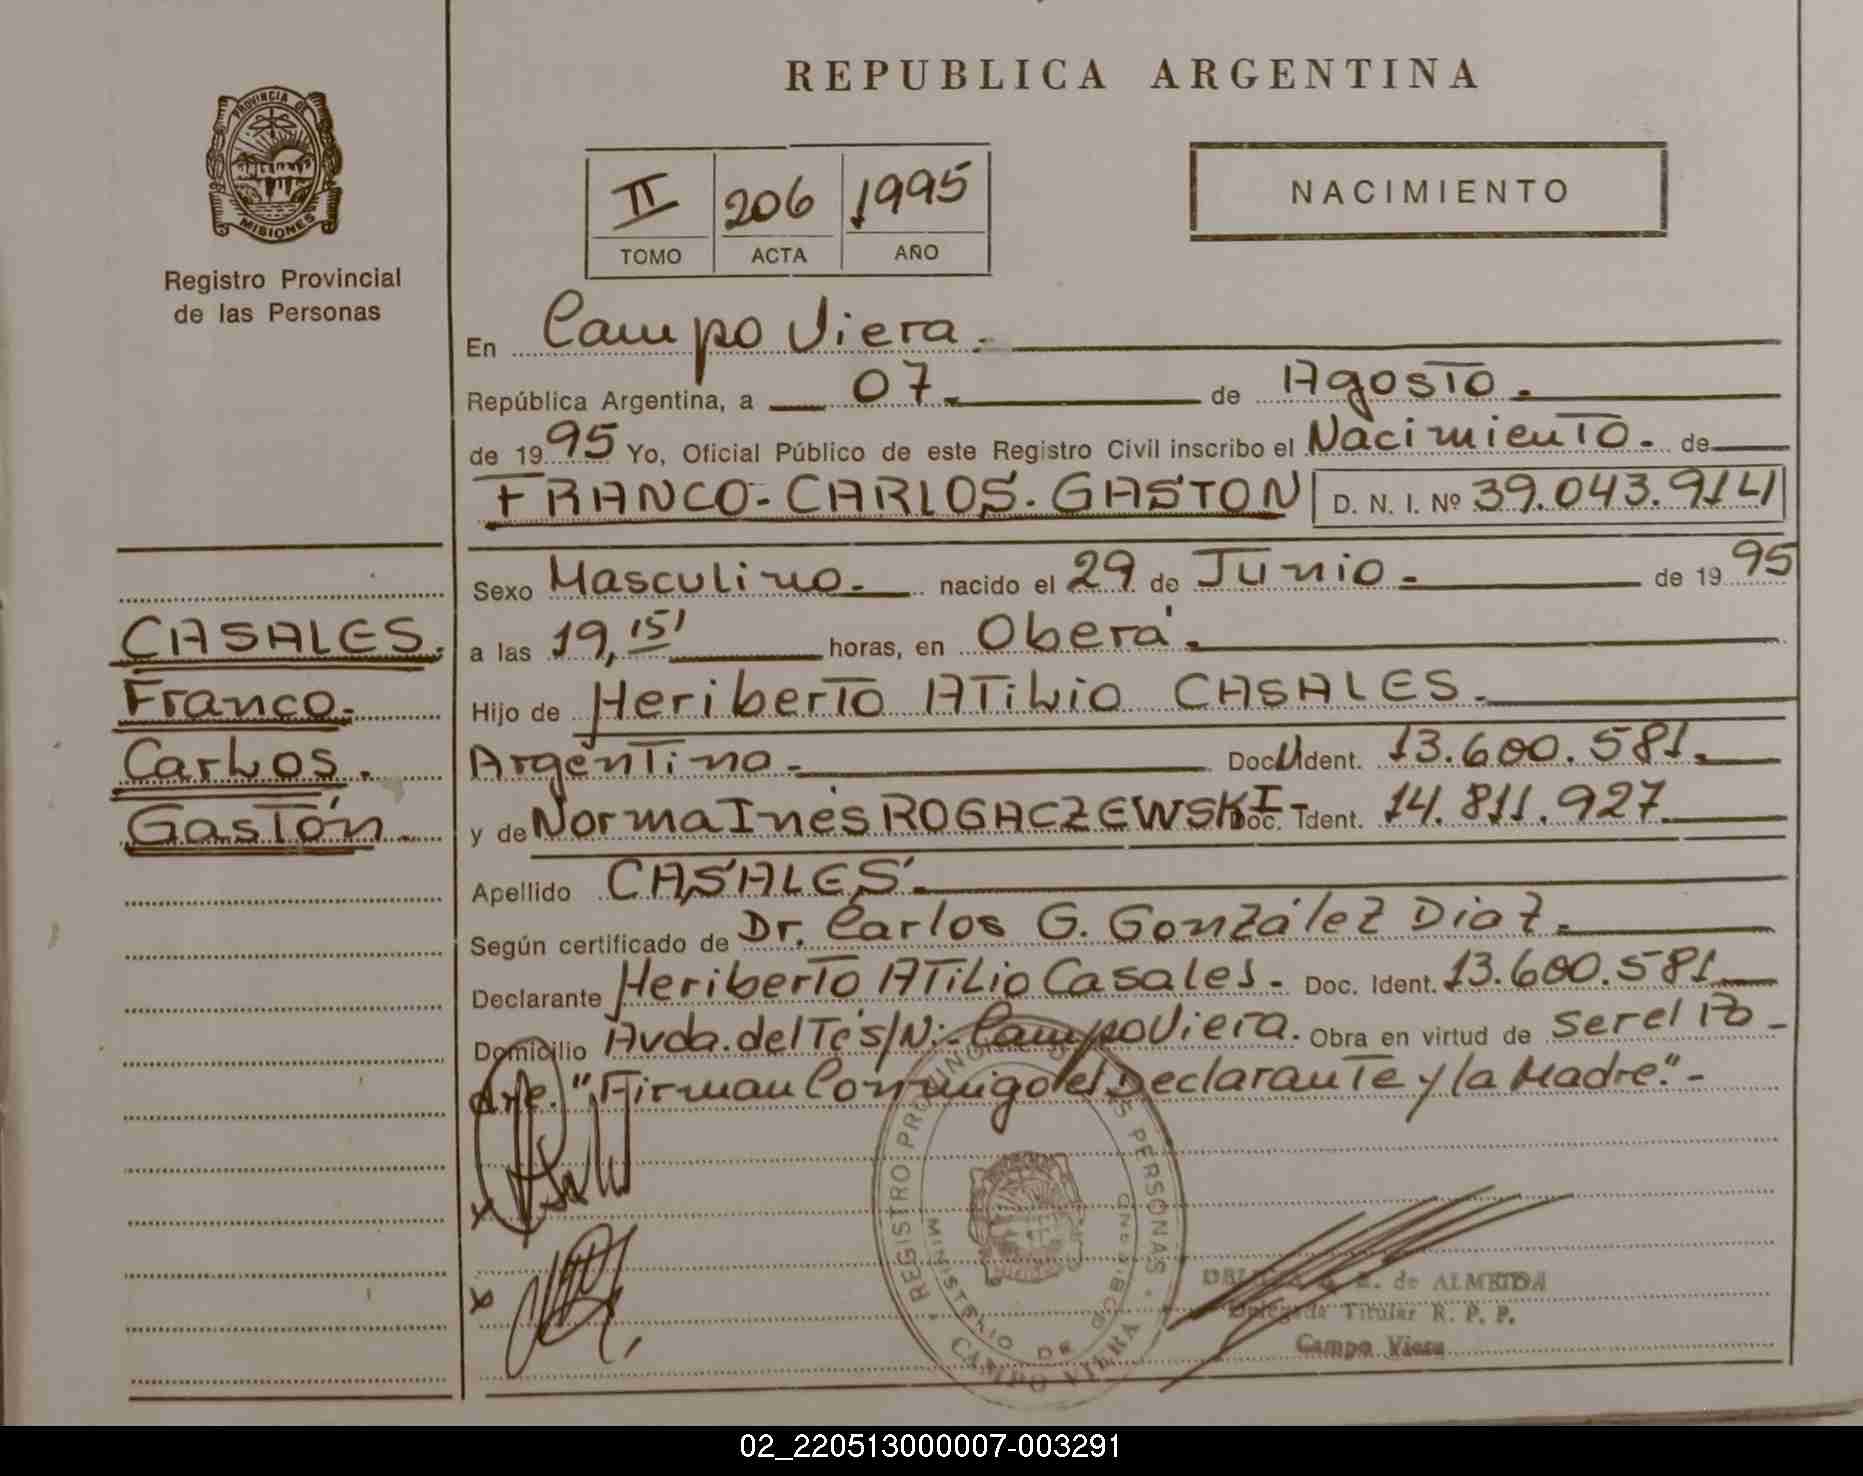 REPUBLICA ARGENTINA
PROVINCIA DE
MISIONES
Registro Provincial
de las Personas
II 206 1995
TOMO ACTA AÑO
NACIMIENTO
En Campo Viera.
República Argentina, a 07. de Agosto.
de 1995 Yo, Oficial Público de este Registro Civil inscribo el Nacimiento. de
FRANCO-CARLOS-GASTON D. N. I. Nº 39.043.914
Sexo Masculino. nacido el 29 de Junio. de 1995
CASALES.
Franco.
Carlos.
Gastón.
a las 19,15' horas, en Oberá.
Hijo de Heriberto Atilio CASALES.
Argentino. Doc. Ident. 13.600.581.
y de Norma Inés ROGACZEWSKI- Doc. Ident. 14.811.927
Apellido CASALES.
Según certificado de Dr. Carlos G. González Diaz.
Declarante Heriberto Atilio Casales. Doc. Ident. 13.600.581
Domicilio Avda. del Té s/N: Campo Viera. Obra en virtud de ser el Pa-
dre. "Firman Conmigo el Declarante y la Madre."-
x
x
REGISTRO PROVINCIAL DE LAS PERSONAS
MINISTERIO DE GOBIERNO
CAMPO VIERA
de ALMEIDA
Delegada Titular R. P. P.
Campo Viera
02_220513000007-003291